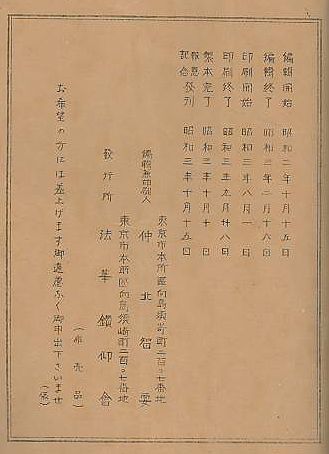 編輯開始　昭和二年十月十五日
編輯終了　昭和三年二月十六日
印刷開始　昭和三年八月一日
印刷終了　昭和三年九月廿八日
製本完了　昭和三年十月十日
報恩記念發刊　昭和三年十月十五日
東京市本所區向島須崎町二百〇七番地
編輯兼印刷人　仲北智要
東京市本所區向島須崎町二百〇七番地
發行所　法華鑽仰會
（非売品）
お希望の方には差上げます御遠慮なく御申出下さいませ
（係）